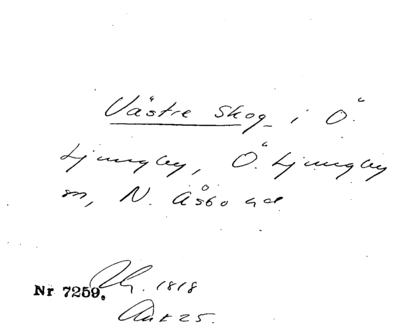 Västre Skog i Ö.
Ljungby, Ö. Ljungby
sn, N. Åsbo hd
1818
Nr 7259.
Akt 25.